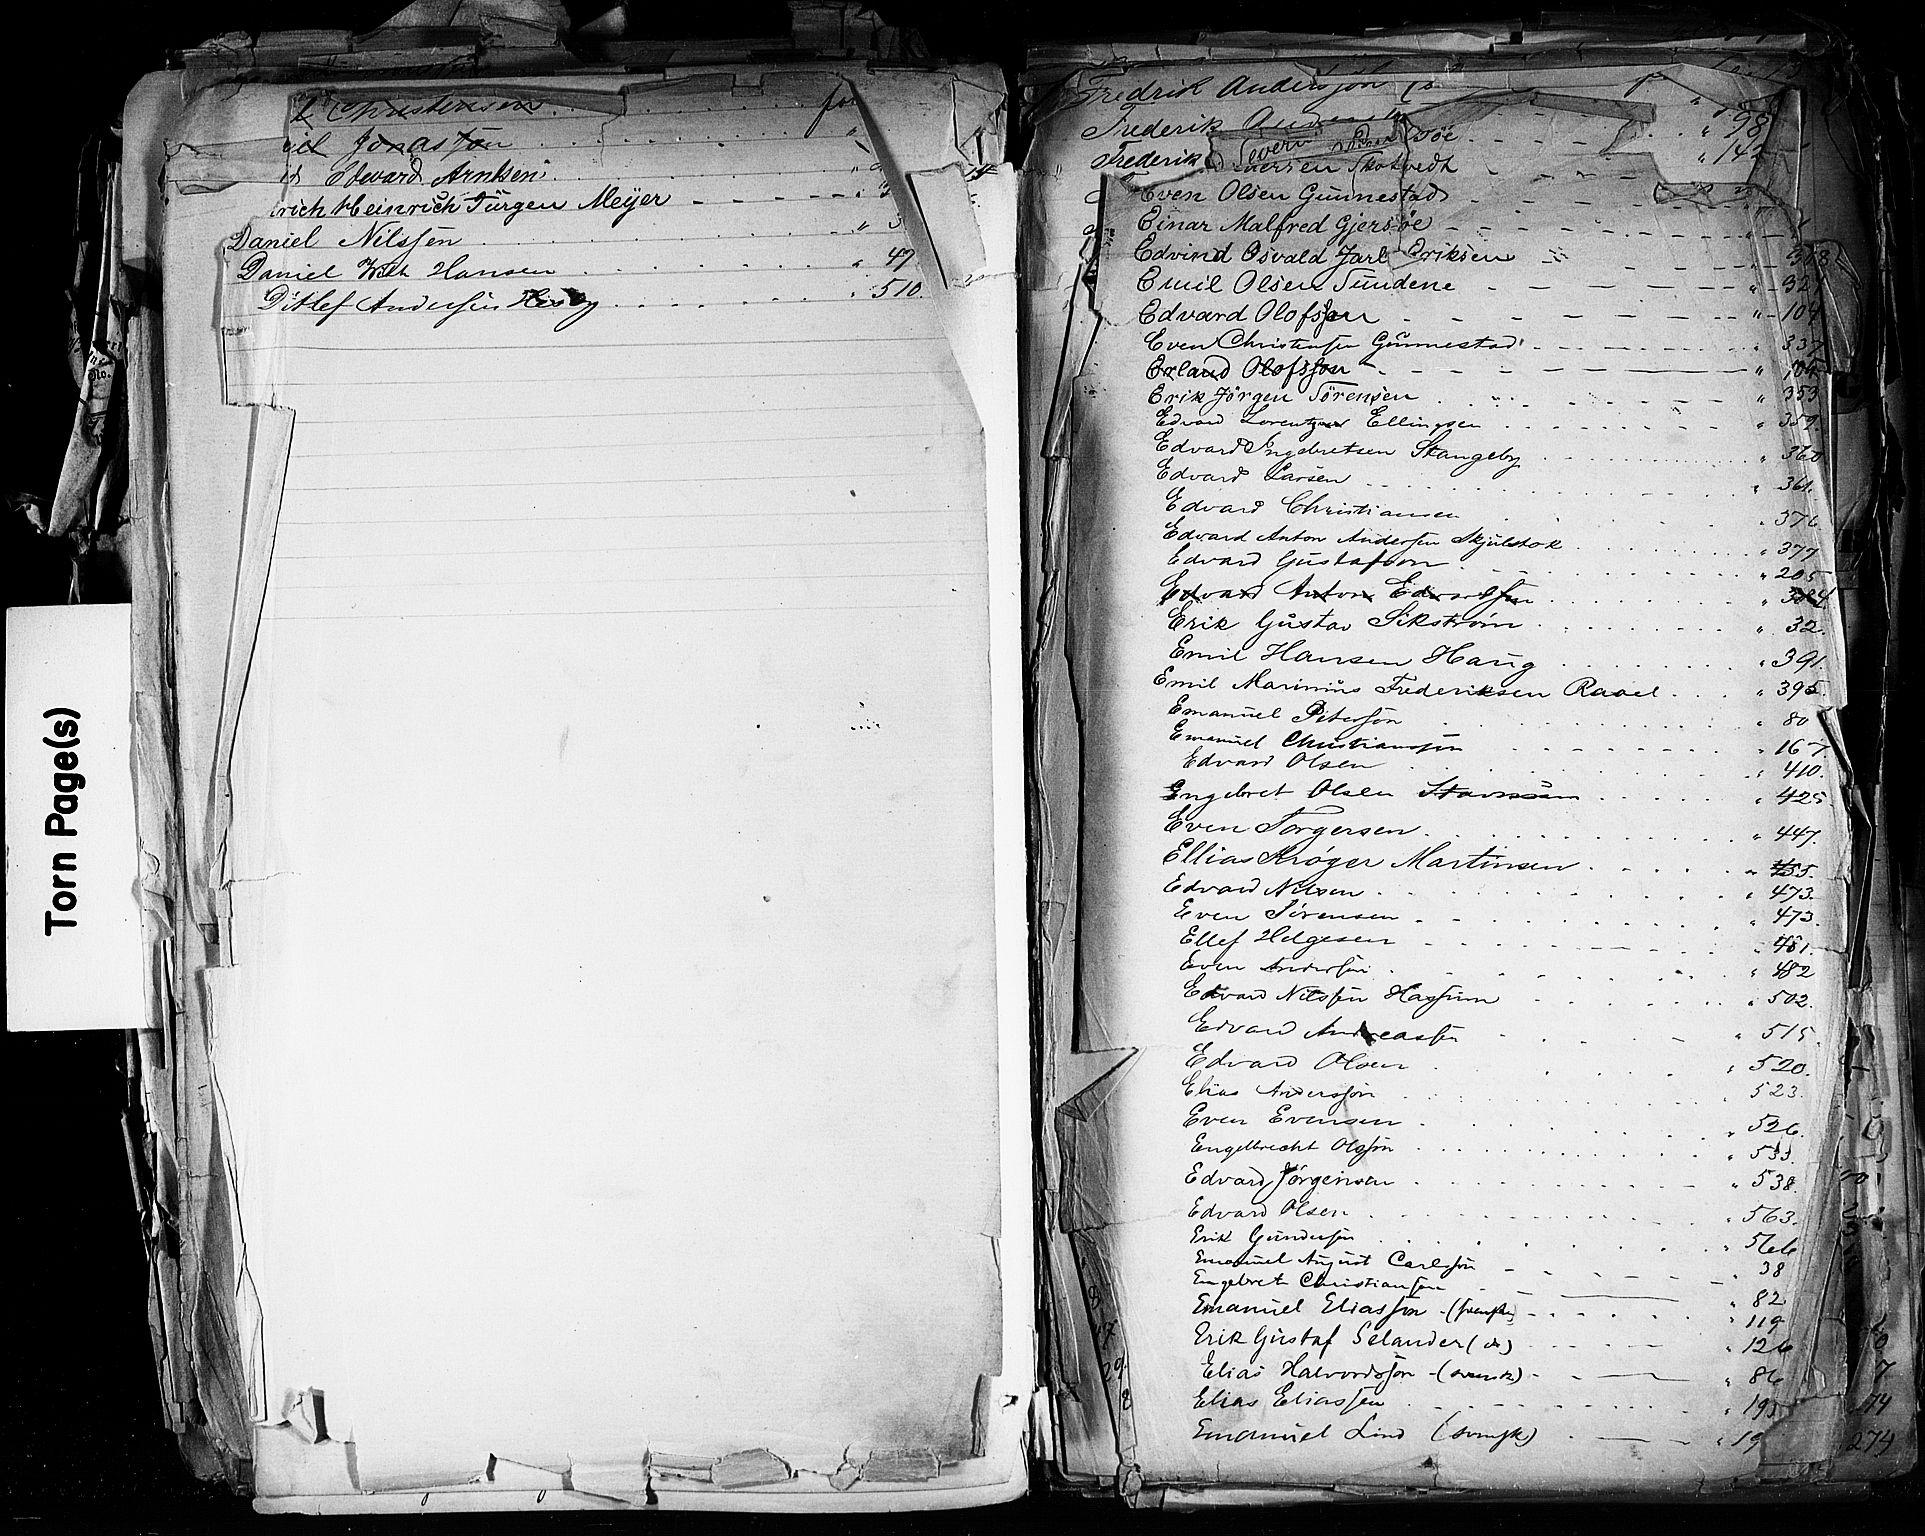 Torn Page(s)
Christensen
Jonasson
Edvard Arntsen
rich Heinrich Jürgen Meÿer
Daniel Nilssen
Daniel Wilh Hansen 47
Ditlef Andersen Hesby " 510.
Fredrik Andersson
Frederik " 98
Frederik " 142
Even Olsen Gunnestad
Einar Malfred Gjersöe
Edvind Osvald Jarl Eriksen 318
Emil Olsen Sundene " 321
Edvard Olofssen " 104
Even Christensen Gunnestad " 337
Erland Olofsson "
Erik Jörgen Sörensen " 353
Edvard Lorentzen Ellingsen " 359.
Edvard Ingebretsen Stangeby " 360
Edvard Larsen " 361.
Edvard Christiansen " 376
Edvard Anton Andersen Skjulstok " 377
Edvard Gustafson " 205
Edvard Anton Edvardsen " 384
Erik Gustav Sikström " 32.
Emil Hansen Haug " 391.
Emil Marinius Frederiksen Raael " 395.
Emanuel Peterson " 80
Emanuel Christiansson " 167
Edvard Olsen " 410.
Engebret Olsen " 425
Even Torgersen " 447.
Ellias Krøger Martinsen " 455.
Edvard Nilsen " 473.
Even Sörensen " 473
Ellef Helgesen " 481.
Even Andersen " 482
Edvard Nilssen Hassum " 502.
Edvard Andreassen " 515.
Edvard Olsen " 520.
Elias Andersson " 523.
Even Evensen " 526.
Engelbrecht Olsson " 533.
Edvard Jörgensen " 538.
Edvard Olsen " 563.
Erik Gundersen " 566
Emanuel August Carlsson " 38
Engebret Christiansen " 82
Emanuel Eliasson (svensk) " 119
Erik Gustaf Selander (do) " 126
Elias Halvordsson (svensk) " 86
Elias Eliassen " 195
Emanuel Lind (svensk) " 19
274